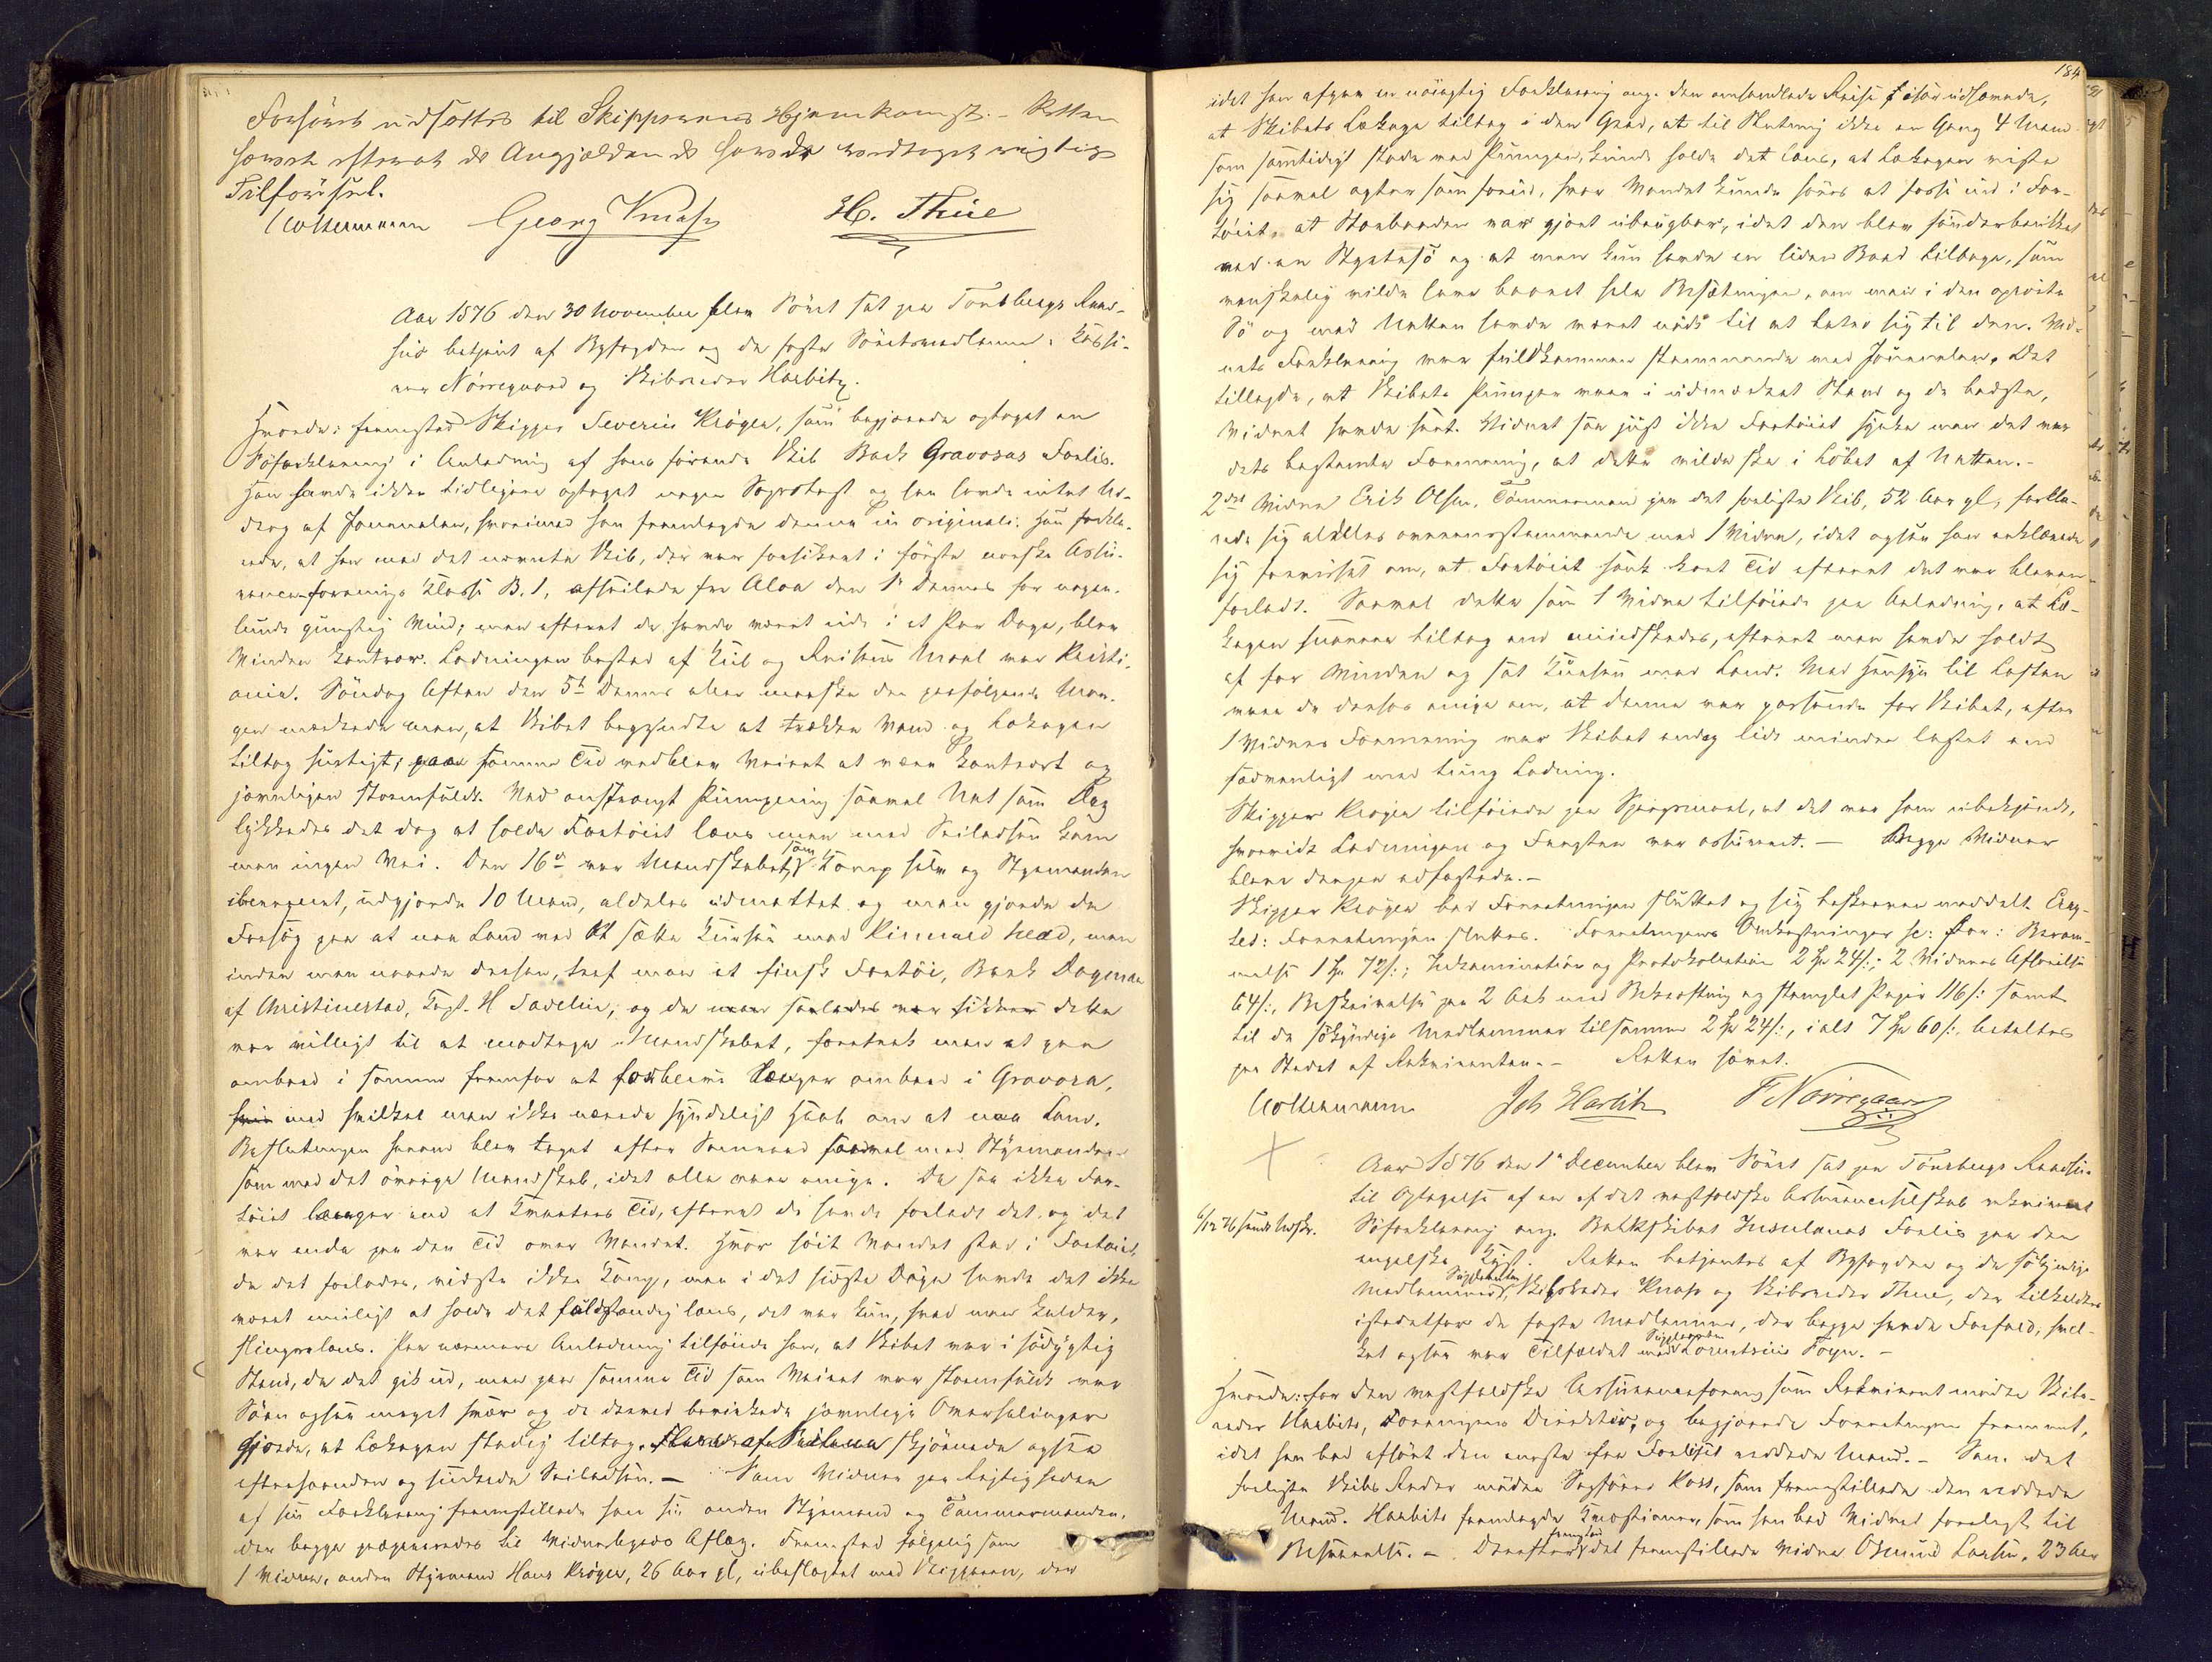 Forhöret udsættes til Skipperens Hjemkomst. - Retten
hævet efterat de Angjældende havde vedtaget rigtig
Tilförsel.
Georg Knap H. Thue
Aar 1876 den 30 November blev Söret sat paa Tönsbergs Raad-
hus betjent af Byfogden og de faste Söretsmedlemmer: Kasse-
rer Nörregaard og Skibsreder Harbitz.
Hvorda: fremstod Skipper Severin Kröger, som begjærede optaget en
Söforklaring i Anledning af hans förende Skib Bark Gravosas Forlis.
Han havde ikke tidligere optaget nogen Söprotest og han havde intet Ud-
drag af Journalen, hvorimod han fremlagde denne in originali. Han forkla-
rede, at han med det nævnte Skib, der var forsikret i förste norske Assu-
ranceforenings Klasse B. 1, afseilede fra Aloa den 1ste Dennes for nogen-
lunde gunstig Vind; men efterat de havde været ude i et Par Dage, blev
Vinden kontrær. Ladningen bestod af Kul og Reisens Maal var Kristi-
ania. Söndag Aften den 5te Dennes eller maaske den paafölgende Mor-
gen mærkede man, at Skibet begyndte at trække Vand og Lækagen
tiltog hurtigt; paa samme Tid vedblev Veiret at være kontrært og
jævnligen stormfuldt. Ved anstrengt Pumpning saavel Nat som Dag
lykkedes det dog at holde Fartöiet læns men med Seiladsen kom
man ingen Vei. Den 16de var Mandskabet, som Komp. selv og Styrmanden
iberegnet, udgjorde 10 Mand, aldeles udmattet og man gjorde da
Forsög paa at naa Land ved at sætte Kursen mod Kinnaird head, men
inden man naaede dersen, traf man et finsk Fartöi, Bark Dagmar
af Christinestad, Capt. H Sadelin, og da dette
var villigt til at modtage Mandskabet, foretrak man at gaa
ombord i samme fremfor at forblive længer ombord i Gravosa,
med hvilket man ikke nærede synderligt Haab om at naa Land.
Beslutningen herom blev taget efter Samraad saavel med Styrmanden
som med det övrige Mandskab, idet alle vare enige. De saa ikke Far-
töiet længer end et Kvarters Tid, efterat de havde forladt det og det
var endu paa den Tid over Vandet. Hvor höit Vandet stod i Fartöiet,
da det forlodes, vidste ikke Komp., men i det sidste Dögn havde det ikke
været muligt at holde det fuldstændig læns, det var kun, hvad man kalder,
slingrelæns. Paa nærmere Anledning tilföiede han, at Skibet var i södygtig
Stand, da det gik ud, men paa samme Tid som Veiret var stormfuldt var
Söen ogsaa meget svær og de derved bevirkede jævnlige Overhalinger
gjorde, at Lækagen stadig tiltog. skjönnede ogsaa
efterhaanden og hindrede Seiladsen. - Som Vidner paa Rigtigheden
af sin Forklaring fremstillede han sin anden Styrmand og Tömmermanden,
der begge præpareredes til Vidneedens Aflæg. Fremstod fölgelig som
1 Vidne, anden Styrmand Hans Kröger, 26 Aar gl, ubeslægtet med Skipperen, der
184
idet han afgav en nöiagtig Forklaring ang. den omhandlede Reise især udhævede,
at Skibets Lækage tiltog i den Grad, at til Slutning ikke en Gang 4 Mand
som samtidigt stode ved Pumpen, kunde holde det læns, at Lækagen viste
sig saavel agter som forud, hvor Vandet kunde höres at fosse ind i Far-
töiet, at Storbaaden var gjort ubrugbar, idet den blev sönderbrukket
ved en Styrtesö og at man kun havde en liden Baad tilbage, som
vanskelig vilde have baaret hele Besætningen, om man i den oprörte
Sö og med Natten havde været nödt til at betro sig til den. Vid-
nets Forklaring var fuldkommen stemmende med Journalen. Det
tillagde, at Skibets Pumper vare i udmærket Stand og de bedste,
Vidnet havde havt. Vidnet saa just ikke Fartöiet synke men det var
dets bestemte Formening, at dette vilde ske i Löbet af Natten. -
2det Vidne Erik Olsen, Tömmermand paa det forliste Skib, 52 Aar gl, forkla-
rede sig aldeles overensstemmende med 1 Vidne, idet ogsaa han erklærede
sig forvisset om, at Fartöiet sank kort Tid efterat det var bleven
forladt. Saavel dette som 1 Vidne tilföiede paa Anledning, at Læ-
kagen snarere tiltog end mindskedes, efterat man havde holdt
af for Vinden og sat Kursen mod Land. Med Hensyn til Lasten
vare de derfor enige om, at denne var passende for Skibet, efter
1 Vidnes Formening var Skibet endog lidt mindre lastet end
sædvanligt med tung Ladning.
Skipper Kröger tilföiede paa Spörgsmaal, at det var ham ubekjendt,
hvorvidt Ladningen og Fragten var assureret. - Begge Vidner
bleve derpaa edfæstede. -
Skipper Kröger bad Forretningen sluttet og sig beskreven meddelt. Eragt-
ted: Forretningen sluttes. Forretningens Omkostninger for: Beram-
melse 1 Sp 72 s.; Indkomination og Protokolation 2 Sp 24 s.; 2 Vidners Afhörelse
64 s., Beskrivelse paa 2 Ark med Bekræftning og stemplet Papir 116 s: samt
til de sökyndige Medlemmer tilsammen 2 Sp 24 s., i alt 7 Sp 60 s. betaltes
paa Stedet af Rekvirenten. - Retten hævet.
Joh Harbitz F Nörregaard
Aar 1876 den 1ste December blev Söret sat paa Tönsbergs Raadhus
til Optagelse af en af det vestfoldske Assuranceselskab rekvireret
6/12 76 sendt Udskr.
Söforklaring ang. Barkskibet Insulanes Forlis paa den
engelske Kyst. Retten betjentes af Byfogden og de sökyndige
Medlemmer, Suppleanten Skibsreder Knap og Skibsreder Thue, der tilkaldtes
istedetfor de faste Medlemmer, der begge havde Forfald, hvil-
ket ogsaa var Tilfældet med Suppleanten Lorentsius Foyn. -
Hvorda: for den vestfoldske Assuranceforening som Rekvirent mödte Skibs-
reder Harbitz, Foreningens Direktör, og begjærede Forretningen fremmet,
idet han bad afhört den eneste fra Forliset reddede Mand. - For det
forliste Skibs Reder mödte Sagförer Koss, som fremstillede den reddede
Mand. Harbitz fremlagde Kvæstioner, som han bad Vidnet forelagt til
Besvarelse. - Derefter fremstod det fremstillede Vidne Osmund Larsen, 23 Aar